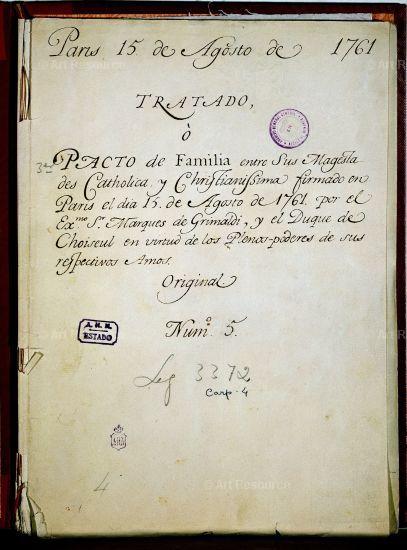 Paris 15. de Agosto de 1761
TRATADO,
ò
3º
PACTO de Familia entre Sus Magesta
des Catholica, y Christianissima firmado en
Paris el dia 15. de Agosto de 1761. por el
Exmo. Sr. Marques de Grimaldi, y el Duque de
Choiseul en virtud de los Plenos-poderes de sus
respectivos Amos.
Original
Numo. 5.
A. H. N.
ESTADO
Leg 3372
Carp. 4
4
© Art Resource